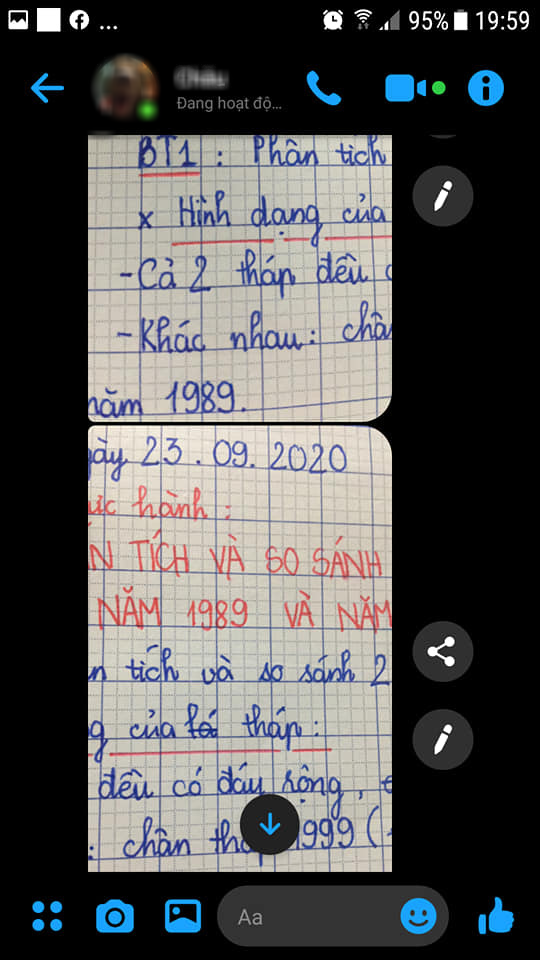 95% 19:59
Đang hoạt độ...
BT1 : Phân tích
x Hình dạng của
- Cả 2 tháp đều
- Khác nhau: chân
năm 1989.
23.09.2020
hành :
TÍCH VÀ SO SÁNH
NĂM 1989 VÀ NĂM
tích và so sánh 2
của tháp :
đều có đáy rộng,
: chân 1999 (
Aa